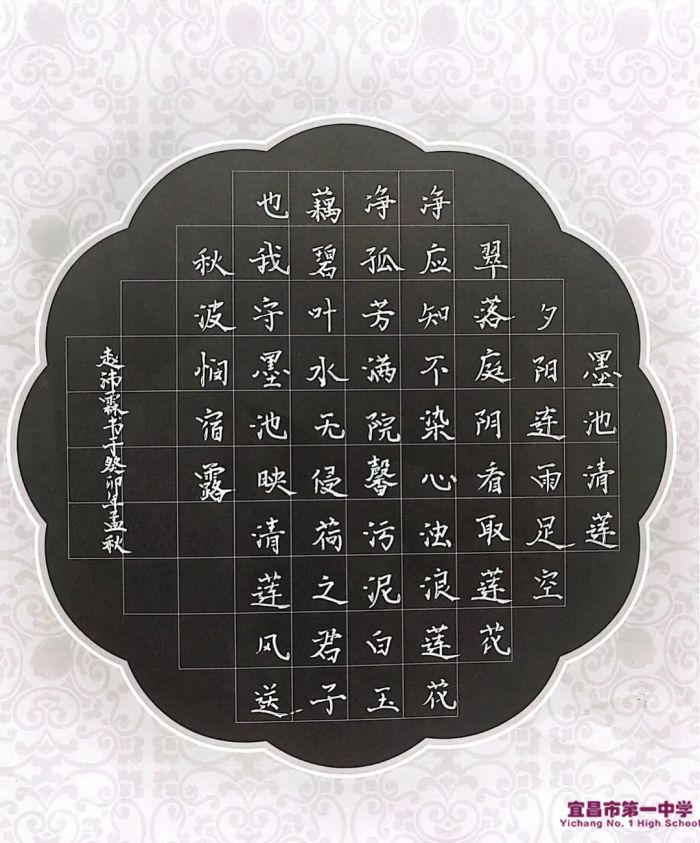 墨池清莲
夕阳连雨足空
翠落庭阴看取莲花
净应知不染心浊浪莲花
净孤芳满院馨污泥白玉
藕碧叶水无侵荷之君子
也我守墨池映清莲风送
秋波悯宿露
赵沛霖书于癸卯年孟秋
宜昌市第一中学
Yichang No. 1 High School